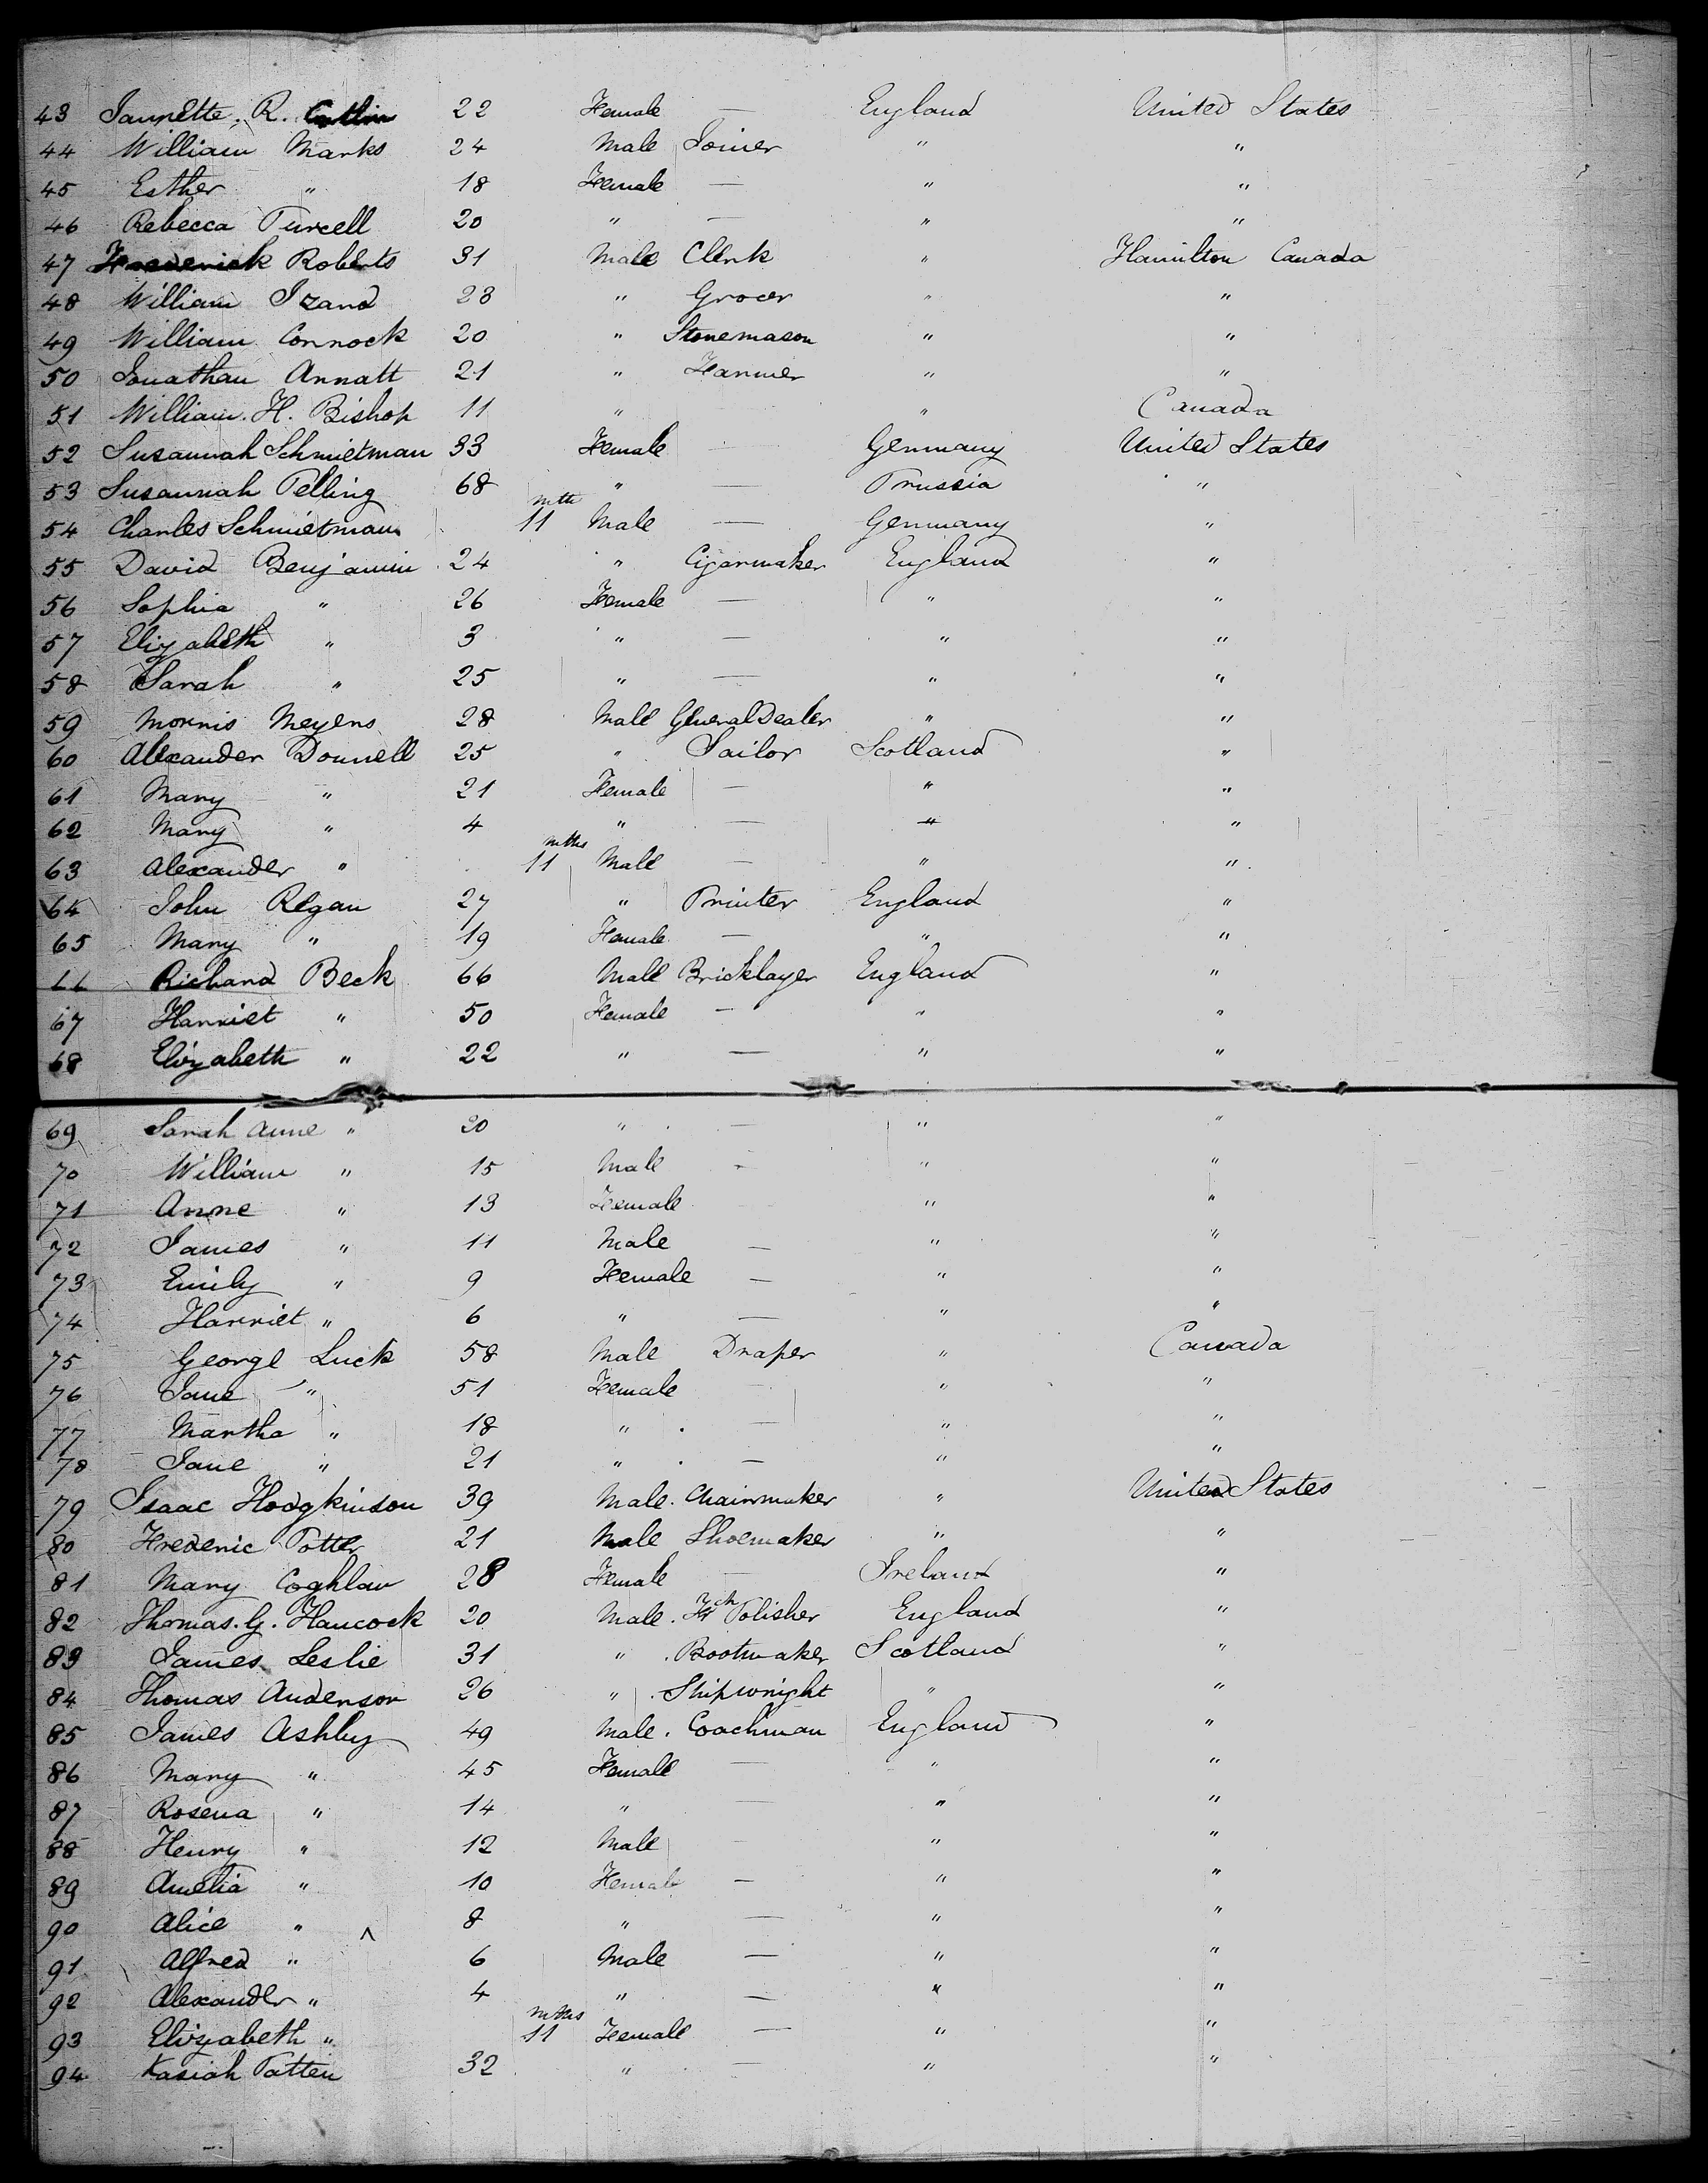 43 Jannette. R. Catlin 22 Female — England United States
44 William Marks 24 Male Joiner " "
45 Esther " 18 Female — " "
46 Rebecca Purcell 20 " — " "
47 Frederick Roberts 31 Male Clerk " Hamilton Canada
48 William Izand 23 " Grocer " "
49 William Connock 20 " Stonemason " "
50 Jonathan Annatt 21 " Farmer " "
51 William. H. Bishop 11 " " Canada
52 Susannah Schmietman 33 Female — Germany United States
53 Susannah Pelling 68 " — Prussia "
54 Charles Schmietman 11 mth Male — Germany "
55 David Benjamin 24 " Cigarmaker England "
56 Sophia " 26 Female — " "
57 Elizabeth " 3 " — " "
58 Sarah " 25 " — " "
59 Morris Meyers 28 Male General Dealer " "
60 Alexander Donnell 25 " Sailor Scotland "
61 Mary " 21 Female — " "
62 Mary " 4 " — " "
63 Alexander " 11 mths Male — " "
64 John Regan 27 " Printer England "
65 Mary " 19 Female — " "
66 Richard Beck 66 Male Bricklayer England "
67 Harriet " 50 Female — " "
68 Elizabeth " 22 " — " "
69 Sarah Anne " 20 " — " "
70 William " 15 Male — " "
71 Anne " 13 Female — " "
72 James " 11 Male — " "
73 Emily " 9 Female — " "
74 Harriet " 6 " — " "
75 George Luck 58 Male Draper " Canada
76 Jane " 51 Female — " "
77 Martha " 18 " — " "
78 Jane " 21 " — " "
79 Isaac Hodgkinson 39 Male. Chairmaker " United States
80 Frederic Potter 21 Male Shoemaker " "
81 Mary Coghlan 28 Female — Ireland "
82 Thomas. G. Hancock 20 Male. Frch Polisher England "
83 James Leslie 31 " Bootmaker Scotland "
84 Thomas Anderson 26 " Shipwright " "
85 James Ashby 49 Male. Coachman England "
86 Mary " 45 Female — " "
87 Rosena " 14 " — " "
88 Henry " 12 Male — " "
89 Amelia " 10 Female — " "
90 Alice " ^ 8 " — " "
91 Alfred " 6 Male — " "
92 Alexander " 4 " — " "
93 Elizabeth " 11 mths Female — " "
94 Kasiah Patten 32 " — " "